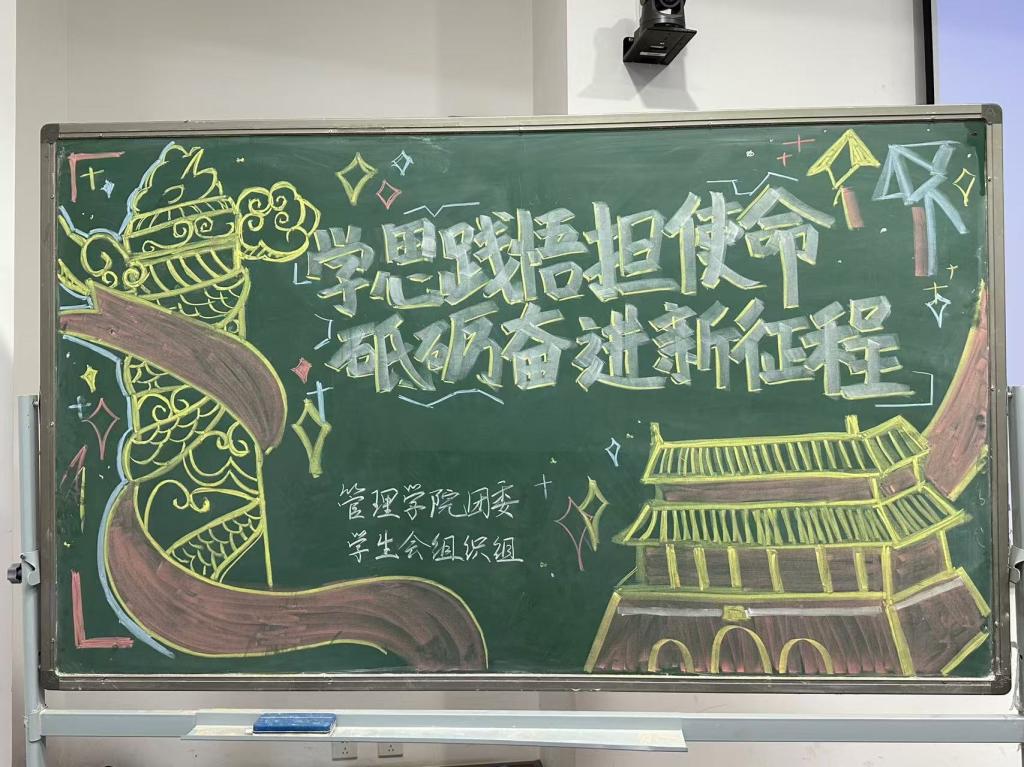 学思践悟担使命
砥砺奋进新征程
管理学院团委
学生会组织组